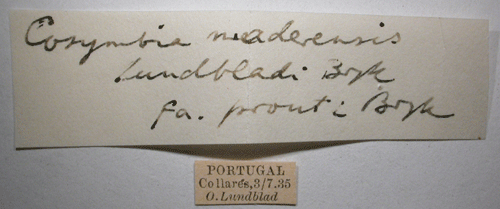 Cosymbia maderensis
Lundbladi Bryk
fa. prouti Bryk
PORTUGAL
Collarés, 3/7.35
O. Lundblad